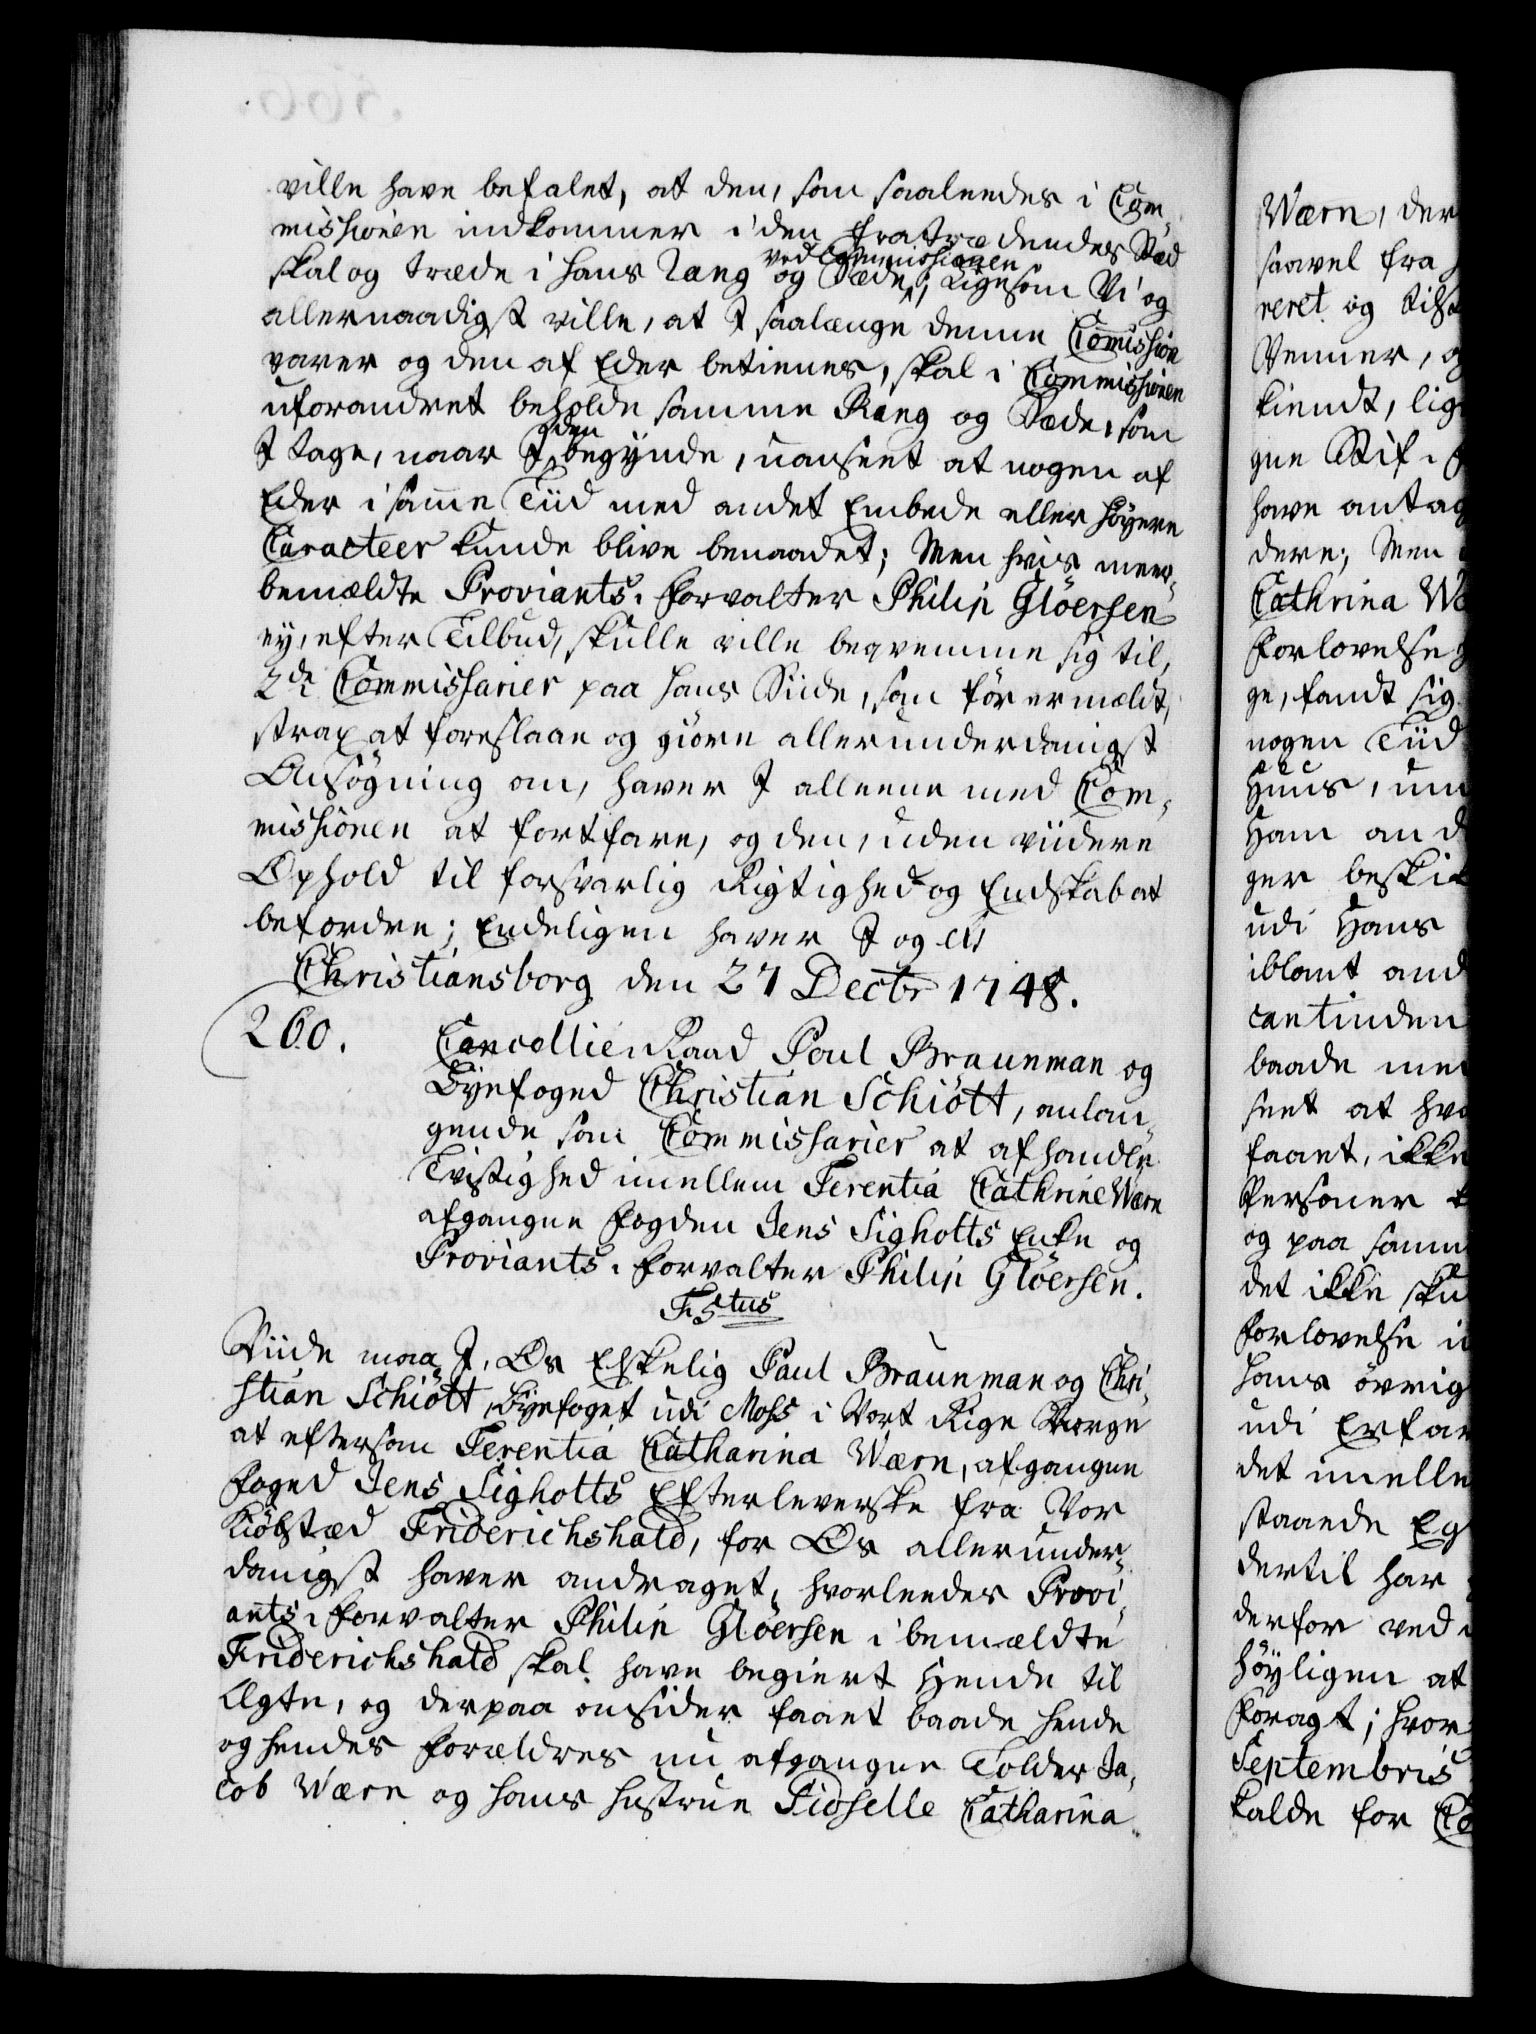 ville have befalet, at den, som saaleedes i Com-
missionen indkommer i den fratrædendes Stæd
skal og træde i hans Rang og Sæde ved Commissionen; Ligesom Vi og
allernaadigst ville, at I saalænge denne Commission
varer og den af Eder betienes, skal i Commissionen
uforandret beholde samme Rang og Sæde, som
I tage, naar I den begynde, uanseet at nogen af
Eder i samme Tiid med andet Embede eller höyere
Caracteer kunde blive benaadet; Men hvis meer-
bemældte Proviants-Forvalter Philip Glöersen
ey, efter Tilbud, skulle ville beqvemme sig til,
2de Commissarier paa hans Siide, som för er mældt,
strax at foreslaae og giöre allerunderdanigst
Ansögning om, haver I alleene med Com-
missionen at fortfare, og den, uden viidere
Ophold til forsvarlig Rigtighed og Endskab at
befordre; Endeligen haver I og etc
Christiansborg den 27 Decbr 1748.
260.
Cancellie-Raad Poul Braunman og
Byefoged Christian Schiött, anlan-
gende som Commissarier at afhandle
Tvistighed imellem Terentia Cathrine Wærn
afgangne Fogden Jens Sigholts Enke og
Proviants-Forvalter Philip Glöersen.
F. 5tus
Viide maa I, Os Elskelig Paul Braunman og Chri-
stian Schiött, Byefoget udi Moss i Vort Rige Norge
at eftersom Terentia Catharina Wærn, afgangne
Foged Jens Sigholts Efterleverske fra Vor
Kiöbstæd Friderichshald, for Os allerunder-
danigst haver andraget, hvorleedes Provi-
ants-Forvalter Philip Glöersen i bemældte
Friderichshald skal have begiert Hende til
Ægte, og derpaa omsider faaet baade hende
og hendes Forældres nu afgangne Tolder Ja-
cob Wærn og hans Hustrue Sidselle Catharina
Wærn, der
saavel fra
reret og tils
Venner, o
kiendt, lig
gne Skif
have antag
dere; Men
Cathrina Wæ
Forlovelse
ge, fandt sig
nogen Tiid
Huus, um
Ham an d
ger beskik
udi Hans
iblant and
cantinden
baade me
seet at hv
faaet, ikke
Personer
og paa samm
det ikke sku
Forlovelse i
hans övrig
udi Erfar
det imelle
staaende Eg
dertil har
derfor ved
höyligen at
Foragt; hvor
Septembris
kalde for Co